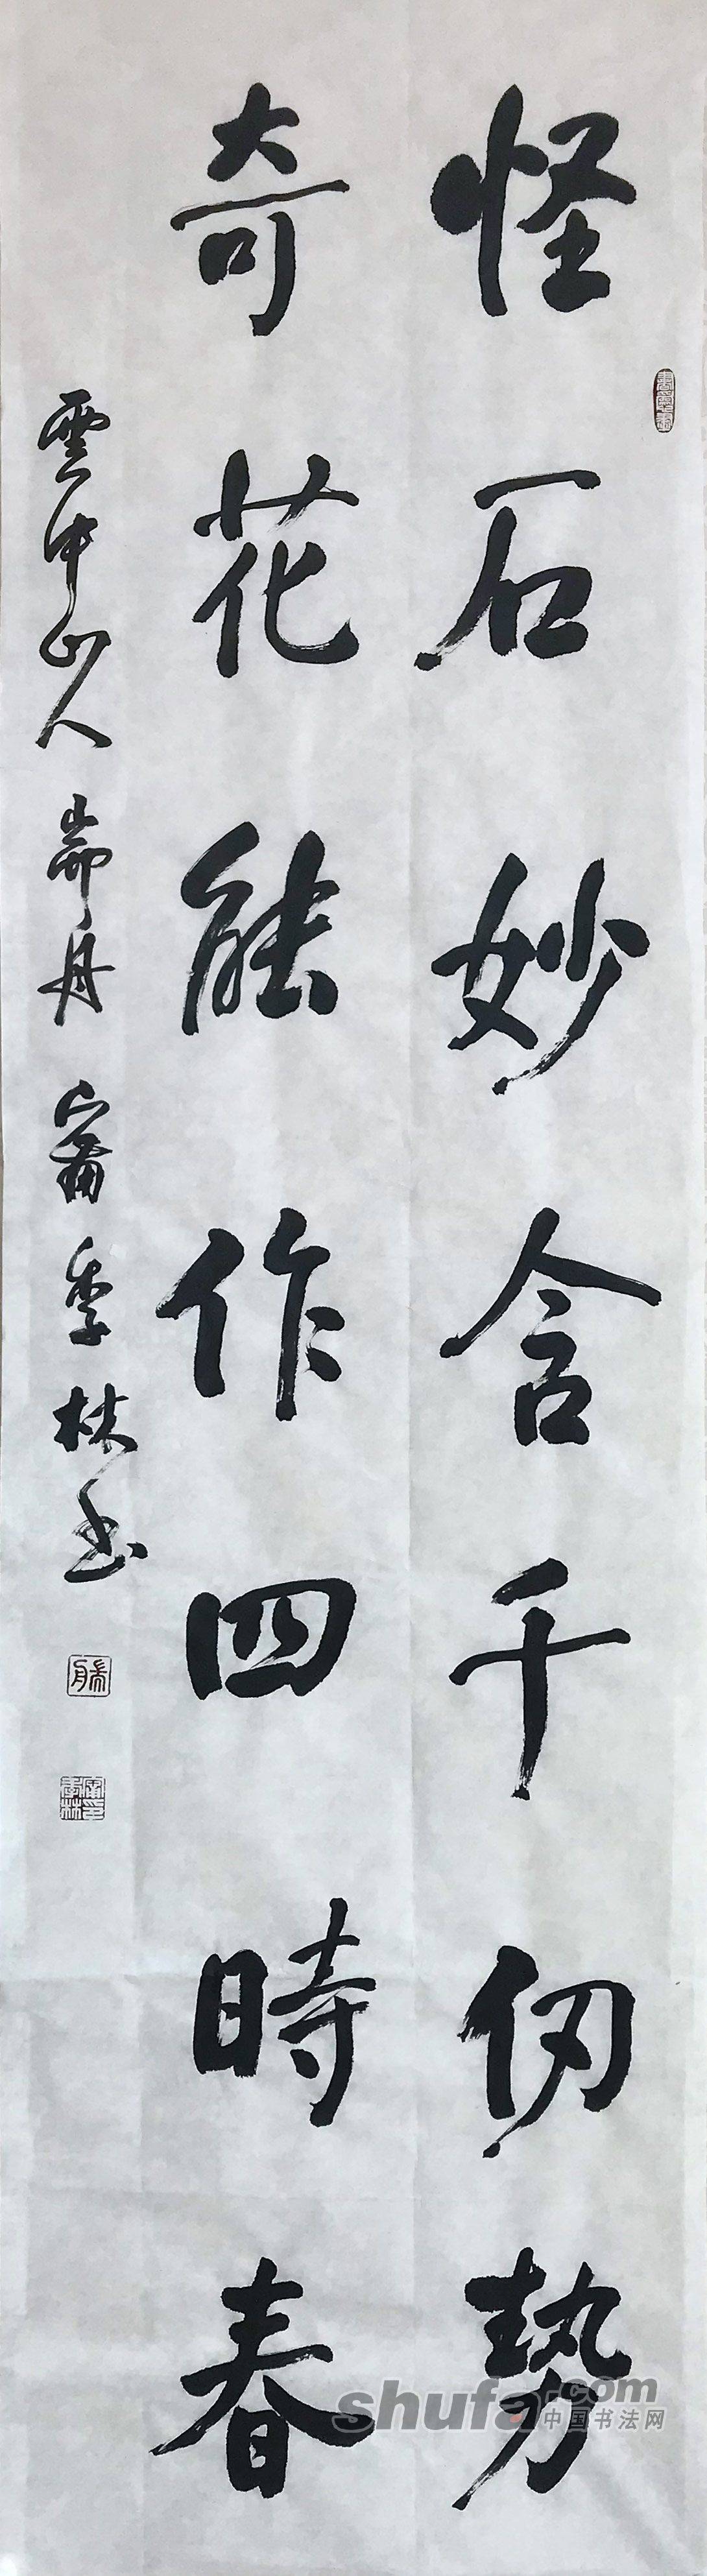 怪石妙含千仞勢
奇花能作四時春
雲中山人 崙丹 甯季林书
shufa.com
中国书法网